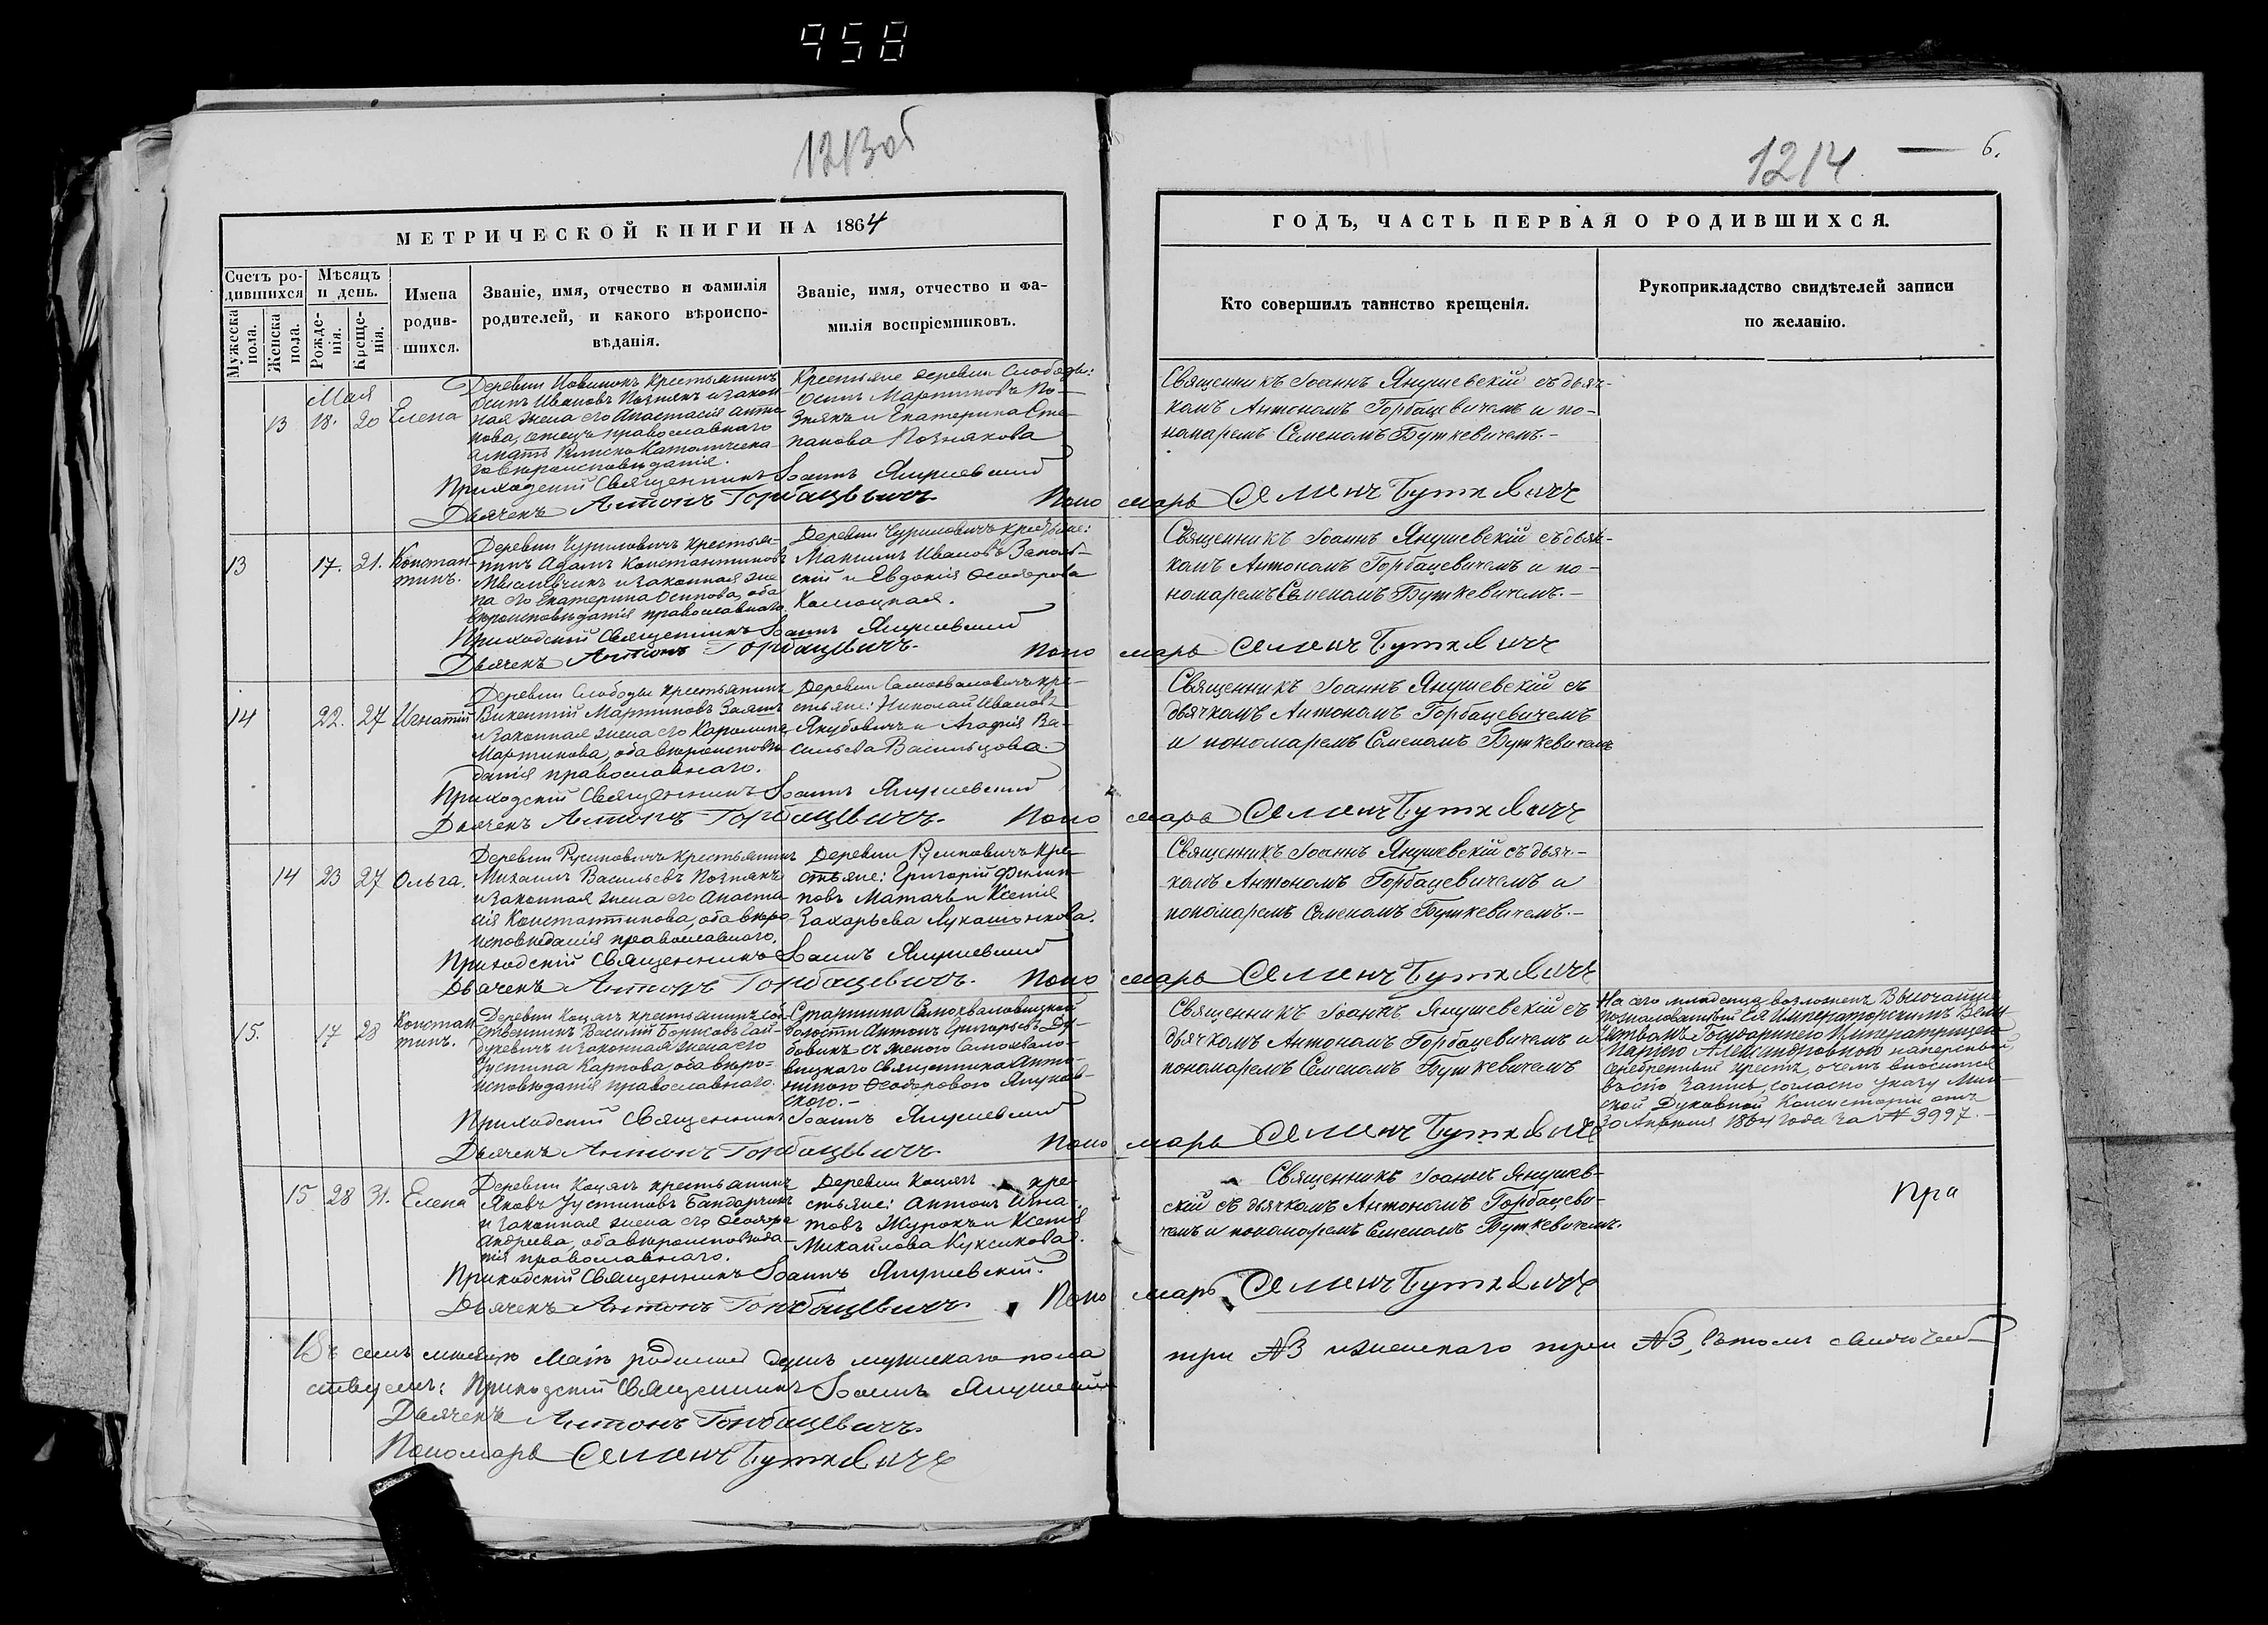 958
1213об
1214
6.
МЕТРИЧЕСКОЙ КНИГИ НА 1864
Счетъ родившихся
Мужеска пола.
Женска пола.
Мѣсяцъ и день.
Рожденія.
Крещенія.
Имена родившихся.
Званіе, имя, отчество и фамилія
родителей, и какого вѣроиспо-
вѣданія.
Званіе, имя, отчество и фа-
милія воспріемниковъ.
ГОДЪ, ЧАСТЬ ПЕРВАЯ О РОДИВШИХСЯ.
Кто совершилъ таинство крещенія.
Рукоприкладство свидѣтелей записи
по желанію.
Мая
13 18. 20 Елена
Деревни Новинокъ крестьянинъ
Осипъ Ивановъ Познякъ и закон
ная жена его Анастасія Анто
нова, отецъ православнаго
а мать Римско Католическа
го вѣроисповѣданія.
Крестьяне деревни Слободы:
Осипъ Мартиновъ По-
знякъ и Екатерина Сте-
панова Познякова
Священникъ Іоаннъ Янушевскій съ дьяч-
комъ Антономъ Горбацевичемъ и по-
номаремъ Семеномъ Буткевичемъ.-
Приходскій Священникъ Іоаннъ Янушевскій
Дьячекъ Антонъ Горбацевичъ. Пономарь Семенъ Буткевичъ
13 17. 21. Констан-
тинъ.
Деревни Чуриловичъ крестья-
нинъ Адамъ Константиновъ
и законная же
на его Екатерина Осипова, оба
вѣроисповѣданія православнаго
Деревни Чуриловичъ крестьяне:
Максимъ Ивановъ Заполь-
скій и Евдокія Ѳеодорова
Священникъ Іоаннъ Янушевскій съ дьяч-
комъ Антономъ Горбацевичемъ и по-
номаремъ Семеномъ Буткевичемъ.-
Приходскій Священникъ Іоаннъ Янушевскій
Дьячекъ Антонъ Горбацевичъ. Пономарь Семенъ Буткевичъ
14 22. 27 Игнатій
Деревни Слободы крестьянинъ
Викентій Мартиновъ
и законная жена его Каролина
Мартинова, оба вѣроисповѣ
данія православнаго.
Деревни Самохваловичъ кре-
стьяне: Николай Ивановъ
Якубовичъ и Агафія Ва-
сильева Васильцова.
Священникъ Іоаннъ Янушевскій съ
дьячкомъ Антономъ Горбацевичемъ
и пономаремъ Семеномъ Буткевичемъ
Приходскій Священникъ Іоаннъ Янушевскій
Дьячекъ Антонъ Горбацевичъ. Пономарь Семенъ Буткевичъ
14 23 27 Ольга.
Деревни Русиновичъ крестьянинъ
Михаилъ Васильевъ Познякъ
и законная жена его Анаста
сія Константинова, оба вѣро
исповѣданія православнаго.
Деревни Русиновичъ кре-
стьяне: Григорій Филип-
повъ и Ксенія
Захарьева Лукашонкова.
Священникъ Іоаннъ Янушевскій съ дьяч-
комъ Антономъ Горбацевичемъ и
пономаремъ Семеномъ Буткевичемъ.-
Приходскій Священникъ Іоаннъ Янушевскій
Дьячекъ Антонъ Горбацевичъ. Пономарь Семенъ Буткевичъ
15. 17 28 Констан
тинъ.
Деревни Коцягъ крестьянинъ соб
ственникъ Василій Борисовъ Гай-
дукевичъ и законная жена его
Іустина Карпова, оба вѣро-
исповѣданія православнаго.
Старшина Самохваловицкой
волости Антонъ Григорьевъ Ду-
бовикъ съ женою Самохвало-
вицкаго Священника Анто-
ниною Ѳеодоровою Янушев-
скою.-
Священникъ Іоаннъ Янушевскій съ
дьячкомъ Антономъ Горбацевичемъ и
пономаремъ Семеномъ Буткевичемъ
На сего младенца возложенъ Высочайше
пожалованный Ея Императорскимъ Вели
чествомъ Государынею Императрицею
Маріею Александровною наперсный
серебреный крестъ, о чемъ вносится
въ сію запись, согласно указу Мин-
ской Духовной Консисторіи отъ
30 Апрѣля 1864 года за № 3997.-
Приходскій Священникъ Іоаннъ Янушевскій
Дьячекъ Антонъ Горбацевичъ. Пономарь Семенъ Буткевичъ
15 28 31. Елена
Деревни Коцягъ крестьянинъ
Яковъ Іустиновъ Бандарчикъ
и законная жена его Ѳеодора
Андреева, оба вѣроисповѣда-
нія православнаго.
Деревни Коцягъ кре-
стьяне: Антонъ Игна-
товъ Журокъ и Ксенія
Михайлова Куксикова.
Священникъ Іоаннъ Янушев-
скій съ дьячкомъ Антономъ Горбацеви-
чемъ и пономаремъ Семеномъ Буткевичемъ.
Пра
Приходскій Священникъ Іоаннъ Янушевскій.
Дьячекъ Антонъ Горбацевичъ. Пономарь Семенъ Буткевичъ
Въ семъ мѣсяцѣ Маіѣ родилось душъ мужескаго пола три №3 и женскаго три №3, въ томъ свидетель-
ствуемъ: Приходскій Священникъ Іоаннъ Янушевскій
Дьячекъ Антонъ Горбацевичъ.
Пономарь Семенъ Буткевичъ